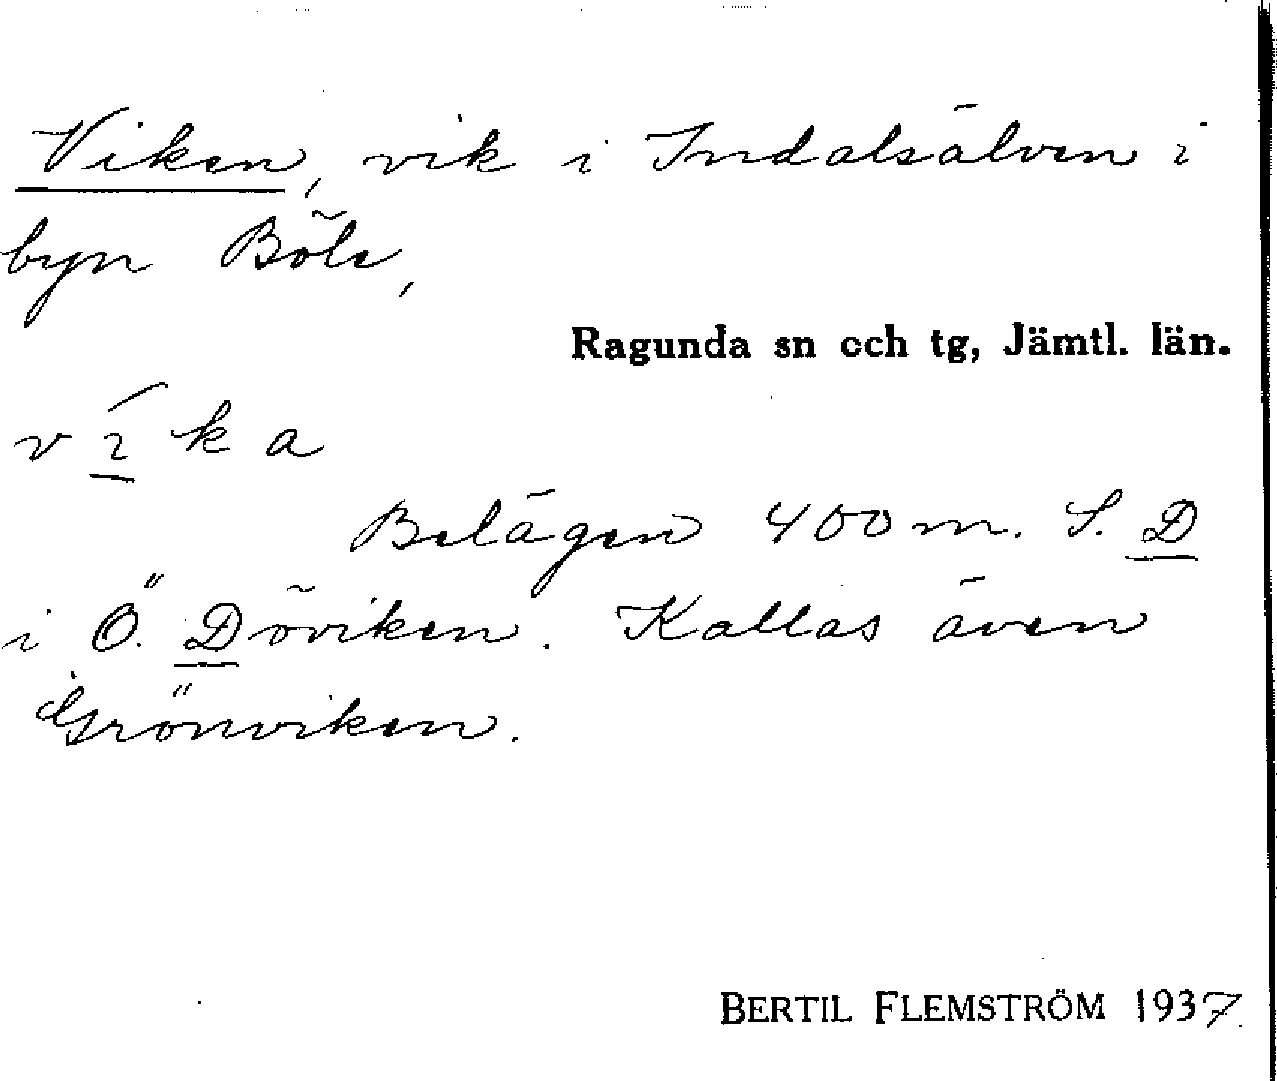 Viken, vik i Indalsälven i
byn Böle,
Ragunda sn och tg, Jämtl. län.
v í k a
Belägen 400 m. S. D
i Ö. Döviken. Kallas även
Grönviken.
BERTIL FLEMSTRÖM 1937